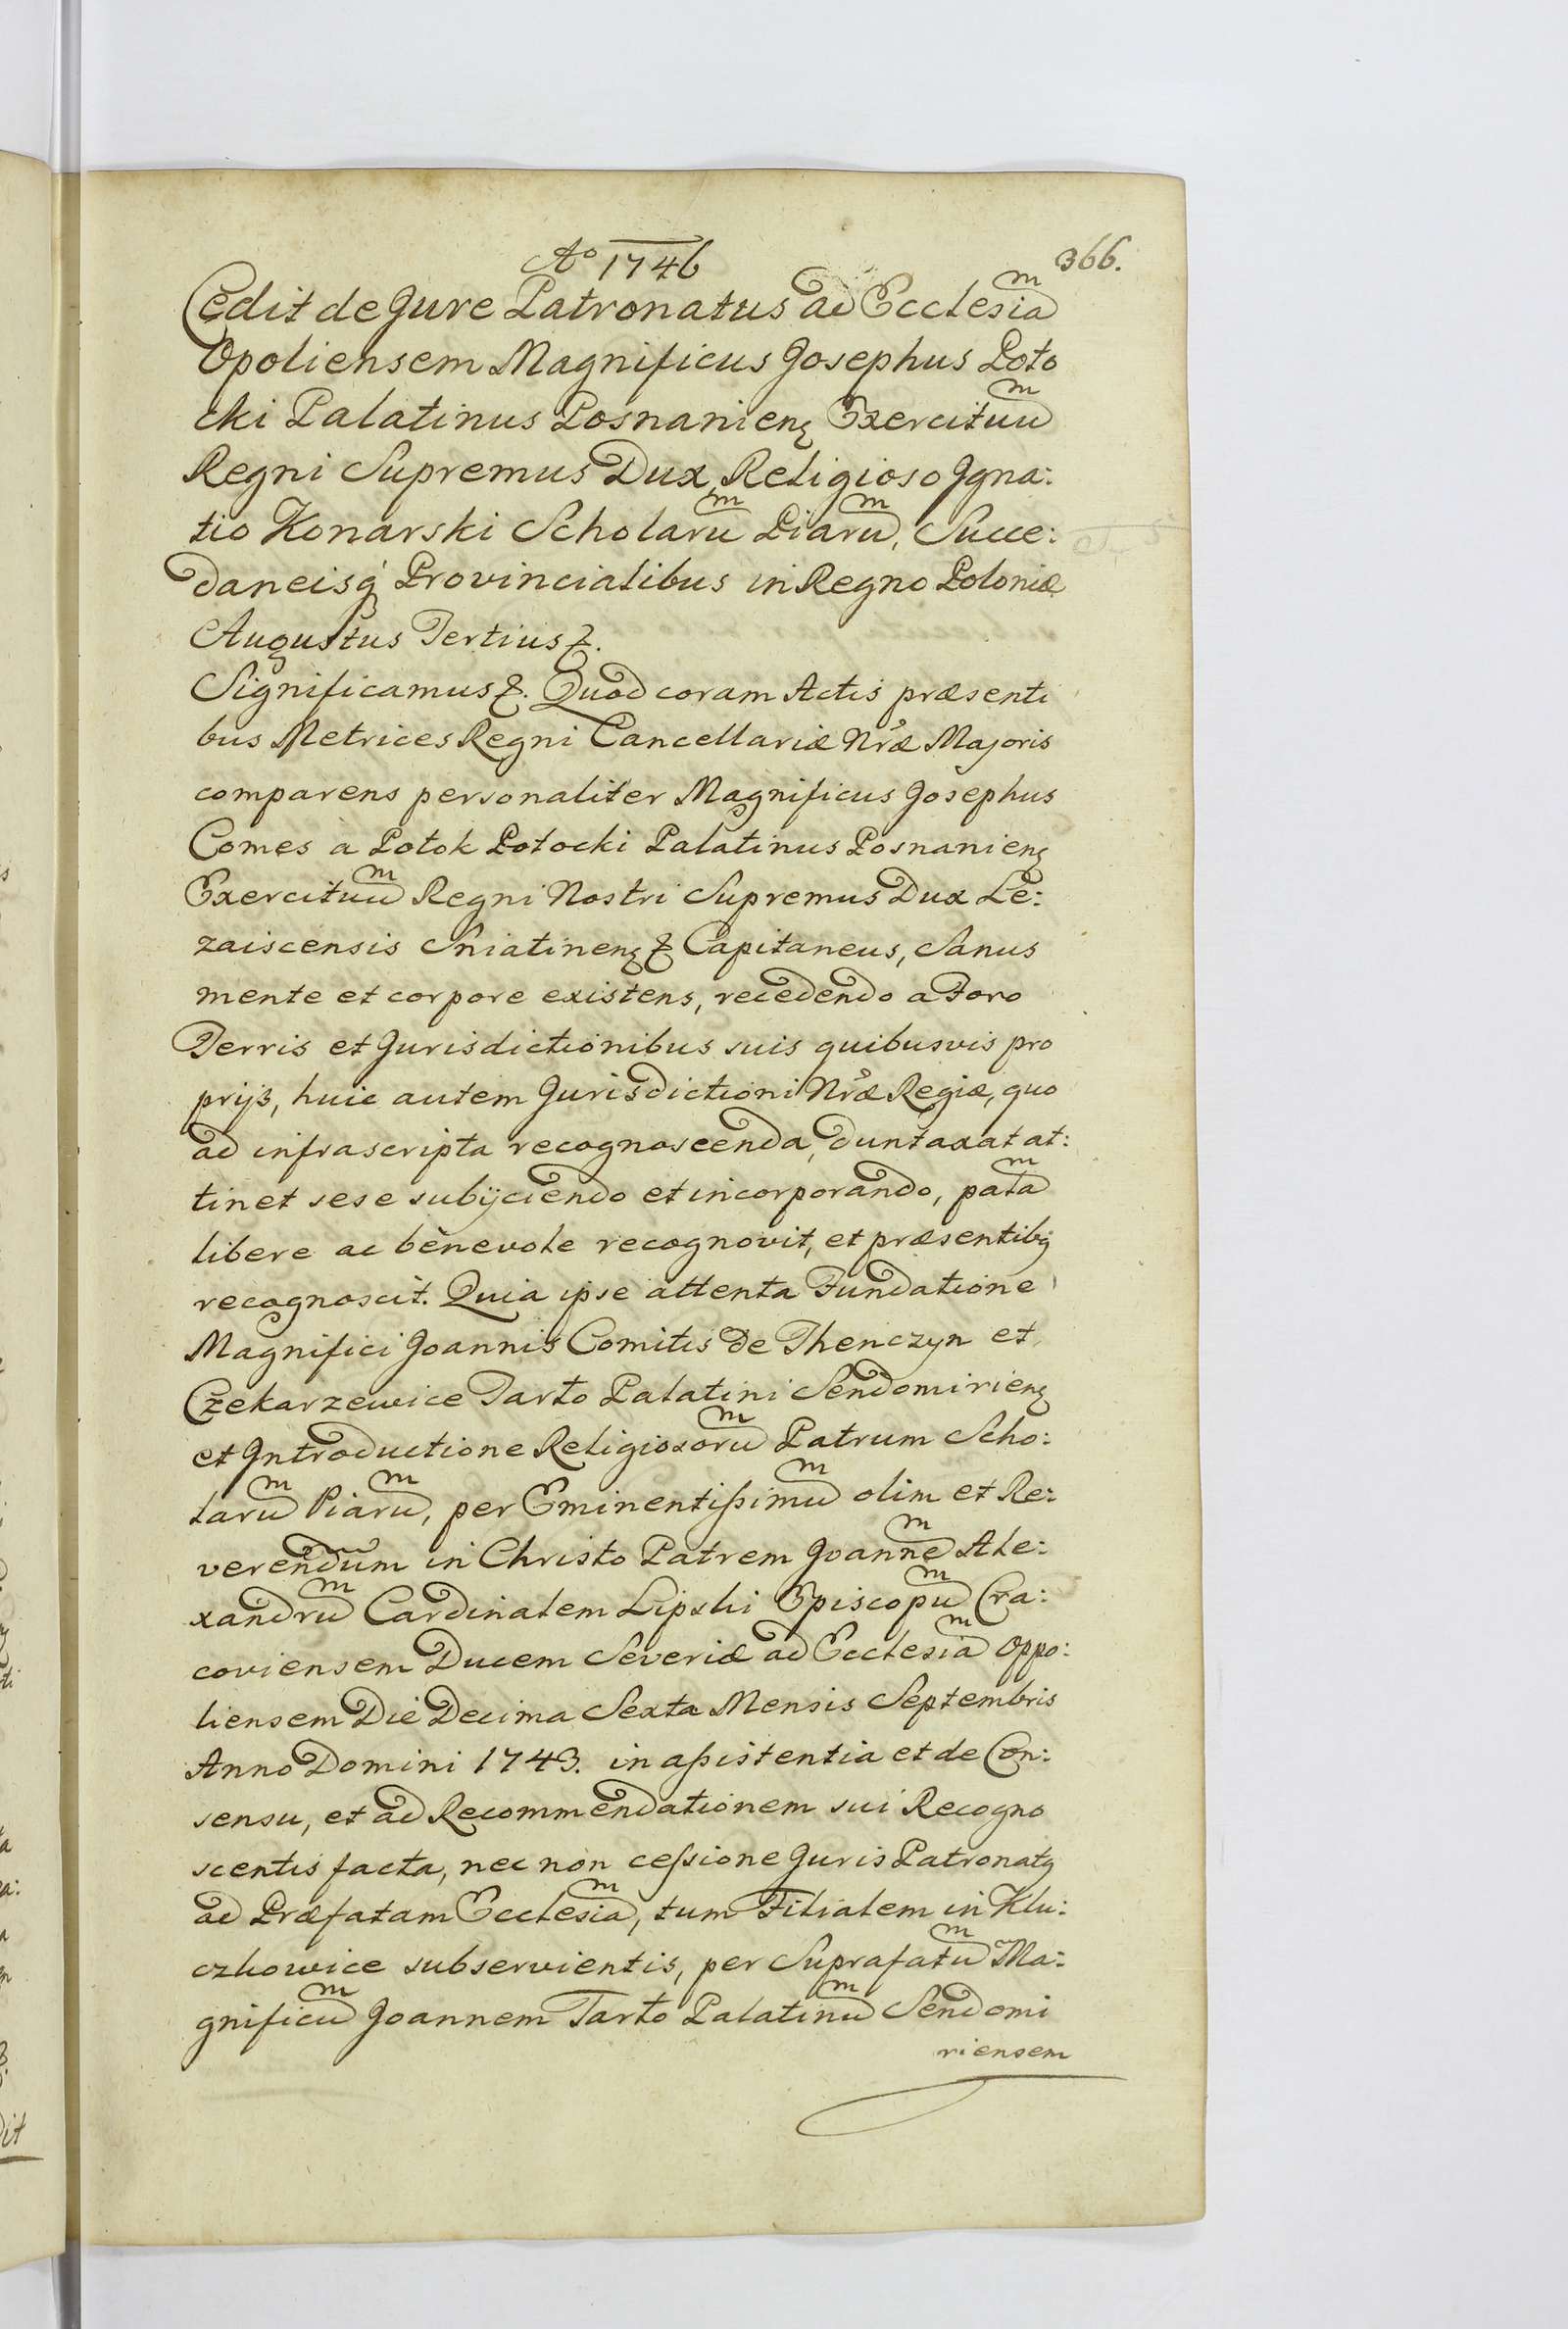 Aº 1746
366.
Cedit de Jure Patronatus ad Ecclesiam
Opoliensem Magnificus Josephus Poto
cki Palatinus Posnanieng Exercituum
Regni Supremus Dux, Religioso Igna:
tio Konarski Scholarum Piarum, Succe:
daneisq Provincialibus in Regno Poloniæ
Augustus Tertius &.
Significamus &. Quod coram Actis præsenti
bus Metrices Regni Cancellariæ Nræ Majoris
comparens personaliter Magnificus Josephus
Comes à Potok Potocki Palatinus Posnanieng
Exercituum Regni Nostri Supremus Dux Le:
zaiscensis Sniatineng & Capitaneus, Sanus
mente et corpore existens, recedendo a Foro
Terris et Jurisdictionibus suis quibusvis pro
prijs, huic autem Jurisdictioni Nræ Regiæ, quo
ad infrascripta recognoscenda, duntaxat at:
tinet sese subijciendo et incorporando, patam
libere ac benevole recognovit, et præsentibq
recognoscit. Quia ipse attenta Fundatione
Magnifici Joannis Comitis de Thenczyn et
Czekarzewice Tarło Palatini Sendomirieng
et Introductione Religiosorum Patrum Scho:
larum Piarum, per Eminentissimum olim et Re:
verendum in Christo Patrem Joannem Ale:
xandrum Cardinalem Lipski Episcopum Cra:
coviensem Ducem Severiæ ad Ecclesiam Oppo:
liensem Die Decima Sexta Mensis Septembris
Anno Domini 1743. in assistentia et de Con:
sensu, et ad Recommendationem sui Recogno
scentis facta, nec non cessione Juris Patronatq
ad Præfatam Ecclesiam, tum Filialem in Klu:
czkowice subservientis, per Suprafatum Ma:
gnificum Joannem Tarło Palatinum Sendomi
riensem